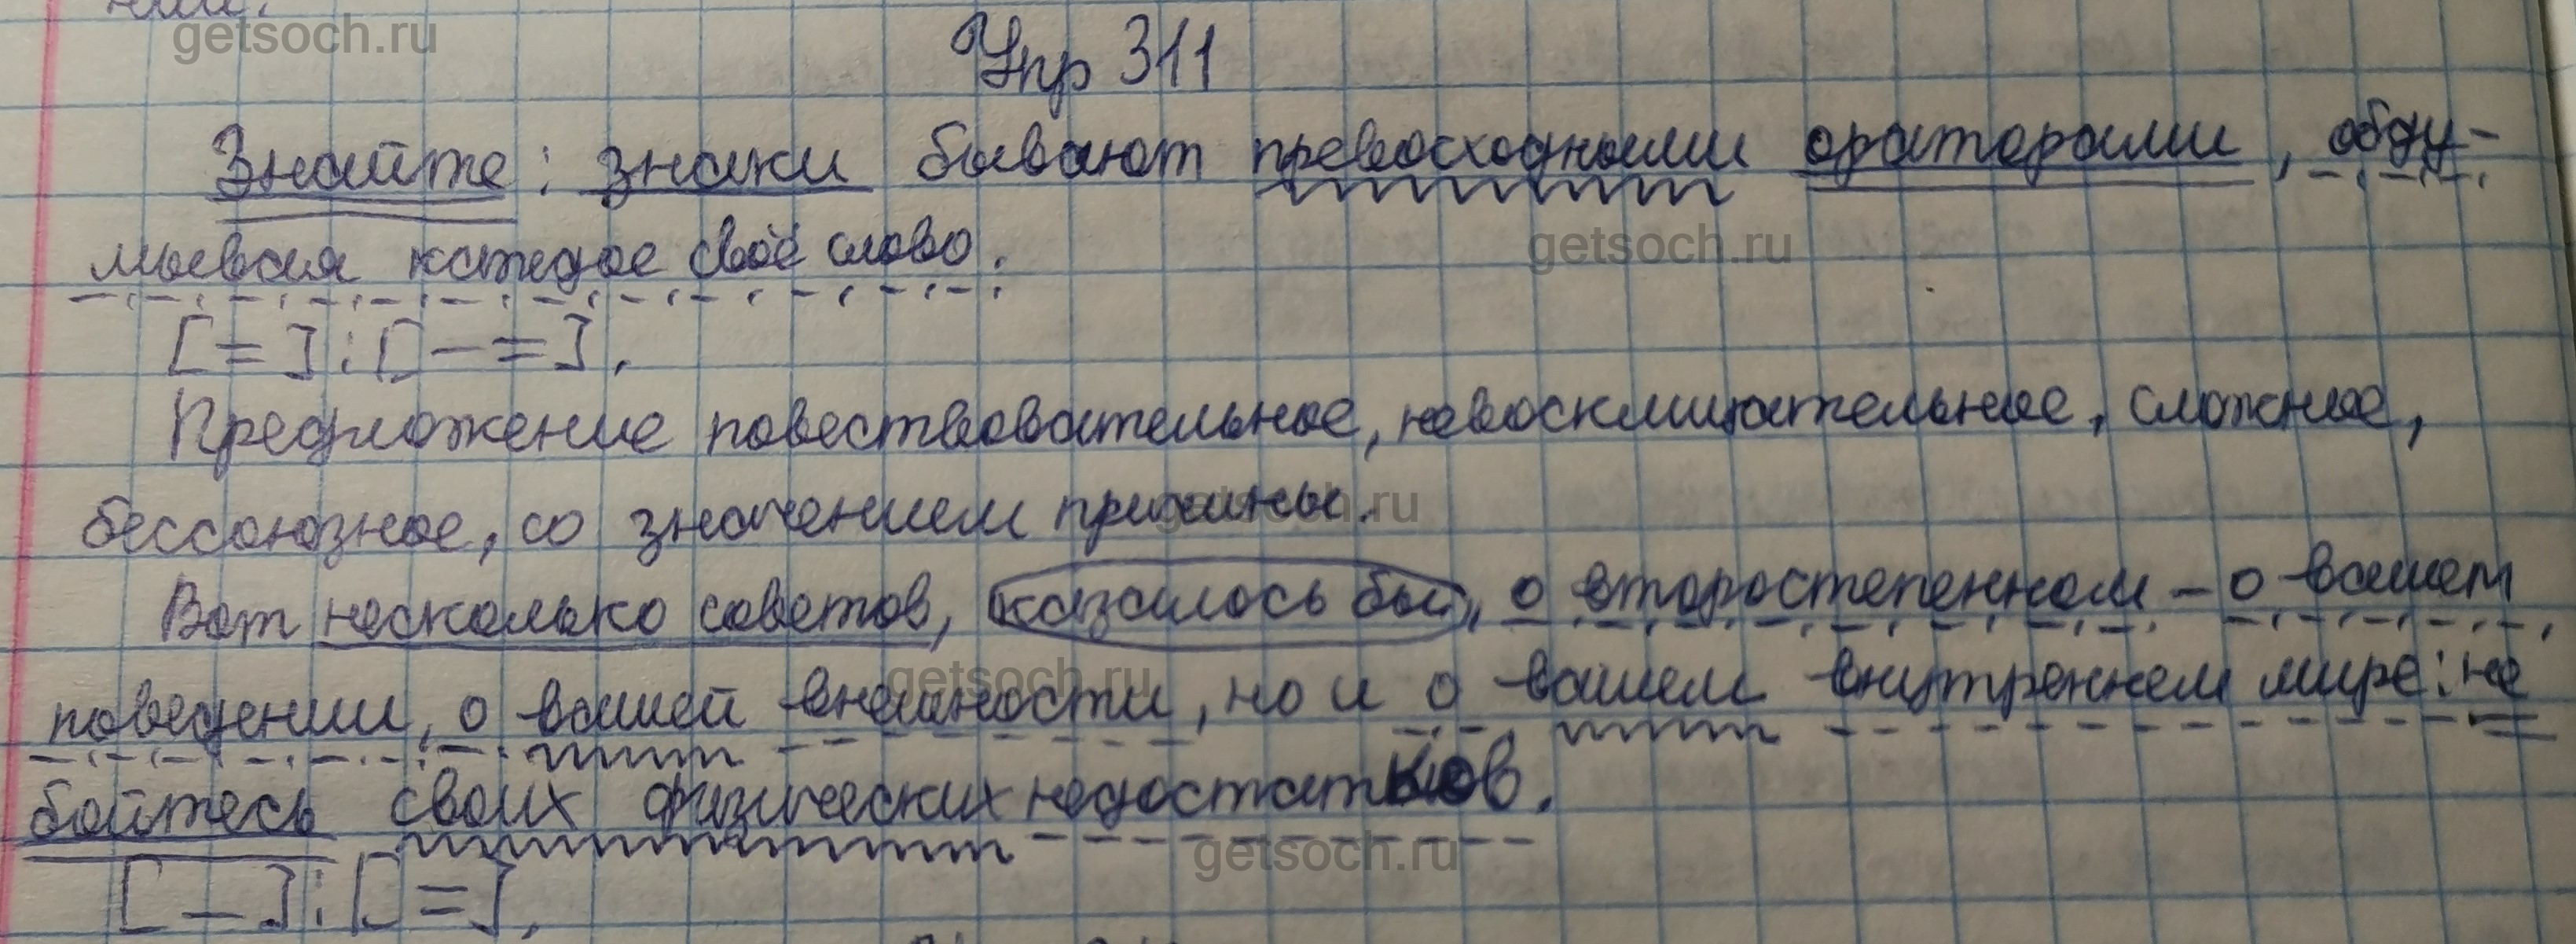 getsoch.ru
Упр 311
Знайте: знаки бывают превосходными ораторами, обду-
getsoch.ru
мывая каждое своё слово.
[=]:[-=].
Предложение повествовательное, невосклицательное, сложное,
бессоюзное, со значением причины.
getsoch.ru
Вот несколько советов, казалось бы, о второстепенном - о вашем
getsoch.ru
поведении, о вашей внешности, но и о вашем внутреннем мире: не
бойтесь своих физических недостатков.
getsoch.ru
[-]:[=].